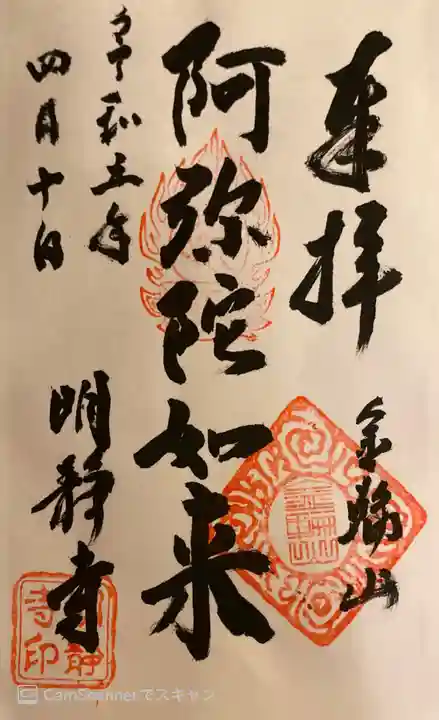 奉拝
金勝山
阿弥陀如来
令和三年
四月十日
明静寺
CamScannerでスキャン